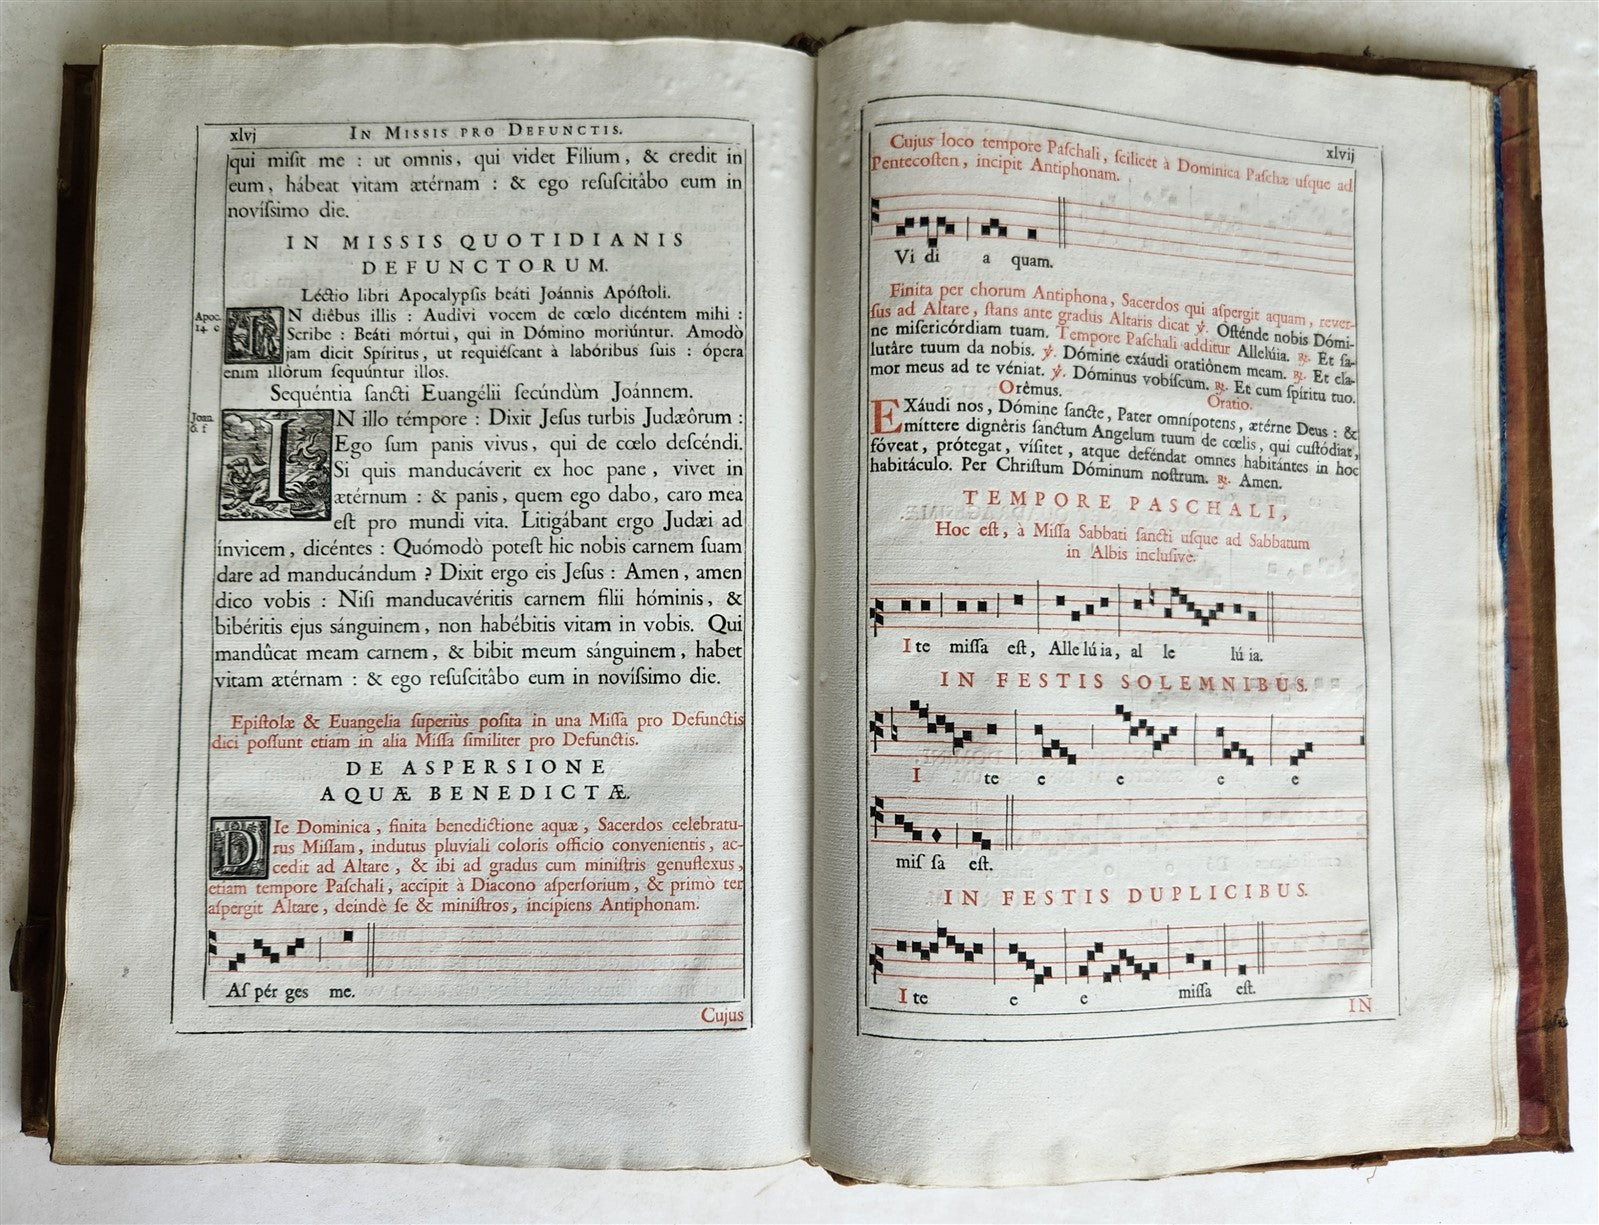 xlvj In Missis pro Defunctis.
qui miſit me : ut omnis, qui videt Fílium, & credit in
eum, hábeat vitam ætérnam : & ego reſuſcitâbo eum in
novíſsimo die.
IN MISSIS QUOTIDIANIS
DEFUNCTORUM.
Léctio libri Apocalypſis beáti Joánnis Apóſtoli.
Apoc.
14. c
IN diêbus illis : Audivi vocem de cœlo dicéntem mihi :
Scribe : Beáti mórtui, qui in Dómino moriúntur. Amodò
jam dicit Spíritus, ut requiéſcant à labóribus ſuis : ópera
enim illôrum ſequúntur illos.
Sequéntia ſancti Euangélii ſecúndùm Joánnem.
Joan.
6. f
IN illo témpore : Dixit Jeſus turbis Judæôrum :
Ego ſum panis vivus, qui de cœlo deſcéndi.
Si quis manducáverit ex hoc pane, vivet in
ætérnum : & panis, quem ego dabo, caro mea
eſt pro mundi vita. Litigábant ergo Judæi ad
ínvicem, dicéntes : Quómodò poteſt hic nobis carnem ſuam
dare ad manducándum ? Dixit ergo eis Jeſus : Amen, amen
dico vobis : Niſi manducavéritis carnem filii hóminis, &
bibéritis ejus sánguinem, non habébitis vitam in vobis. Qui
mandûcat meam carnem, & bibit meum sánguinem, habet
vitam ætérnam : & ego reſuſcitâbo eum in novíſsimo die.
Epiſtolæ & Euangelia ſuperiùs poſita in una Miſſa pro Defunctis
dici poſſunt etiam in alia Miſſa ſimiliter pro Defunctis.
DE ASPERSIONE
AQUÆ BENEDICTÆ.
DIe Dominica, finita benedictione aquæ, Sacerdos celebratu-
rus Miſſam, indutus pluviali coloris officio convenientis, ac-
cedit ad Altare, & ibi ad gradus cum miniſtris genuflexus,
etiam tempore Paſchali, accipit à Diacono aſperſorium, & primò ter
aſpergit Altare, deindè ſe & miniſtros, incipiens Antiphonam.
Aſ pér ges me.
Cujus
xlvij
Cujus loco tempore Paſchali, ſcilicet à Dominica Paſchæ uſque ad
Pentecoſten, incipit Antiphonam.
Vi di a quam.
Finita per chorum Antiphona, Sacerdos qui aſpergit aquam, rever-
ſus ad Altare, ſtans ante gradus Altaris dicat ℣. Oſténde nobis Dómi-
ne miſericórdiam tuam. Tempore Paſchali additur Allelúia. ℟. Et ſa-
lutâre tuum da nobis. ℣. Dómine exáudi oratiônem meam. ℟. Et cla-
mor meus ad te véniat. ℣. Dóminus vobíſcum. ℟. Et cum ſpíritu tuo.
Orêmus. Oratio.
EXáudi nos, Dómine ſancte, Pater omnípotens, ætérne Deus : &
míttere dignêris ſanctum Angelum tuum de cœlis, qui cuſtódiat,
fóveat, prótegat, víſitet, atque deféndat omnes habitántes in hoc
habitáculo. Per Chriſtum Dóminum noſtrum. ℟. Amen.
TEMPORE PASCHALI,
Hoc eſt, à Miſſa Sabbati ſancti uſque ad Sabbatum
in Albis incluſive.
I te miſſa eſt, Alle lú ia, al le lú ia.
IN FESTIS SOLEMNIBUS.
I te e e e e
miſ ſa eſt.
IN FESTIS DUPLICIBUS.
I te e e miſſa eſt.
IN